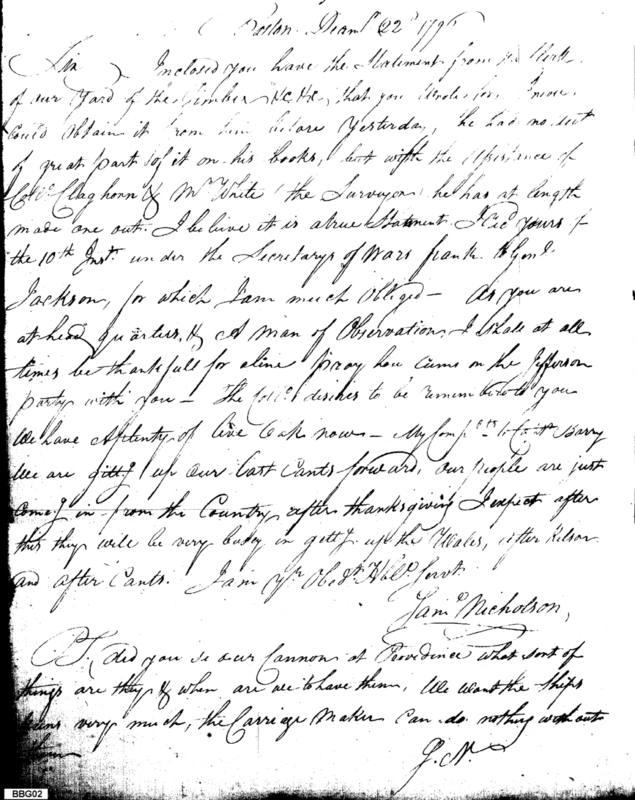 Boston Decemr 22d 1796
Sir Inclosed you have the Statement from the Clerk
of our Yard of the Timber &c &c, that you Wrote for. I never
could obtain it from him before Yesterday, he had no
of great part of it on his books, but with the assistance of
Colo. Claghorn & Mr White (the Surveyor) he has at length
made one out. I belive it is a true Statment. I recd yours of
the 10th Inst. under the Secretarys of Wars frank to Genl.
Jackson, for which I am much Obliged — As you are
at head quarters, & A man of Observation, I shall at all
times be thankfull for a line pray how cums on the Jefferson
party with you — The Collo. desires to be rememberd to you
We have A plenty of live Oak now — My Comp.ts to Capt Barry
We are gittg up our last Cants forward, our people are just
comeg in from the Country after thanksgiving I expect after
this they will be very buisy in gettg up the Wales, after
and after Cants. I am Yr Obedt. Hble. Servt.
Saml. Nicholson,
P.S. did you se our Cannon at Providence what sort of
things are they & when are we to have them, We want the Ships
very much, the Carriage Maker can do nothing without
them
S. N.
BBG02